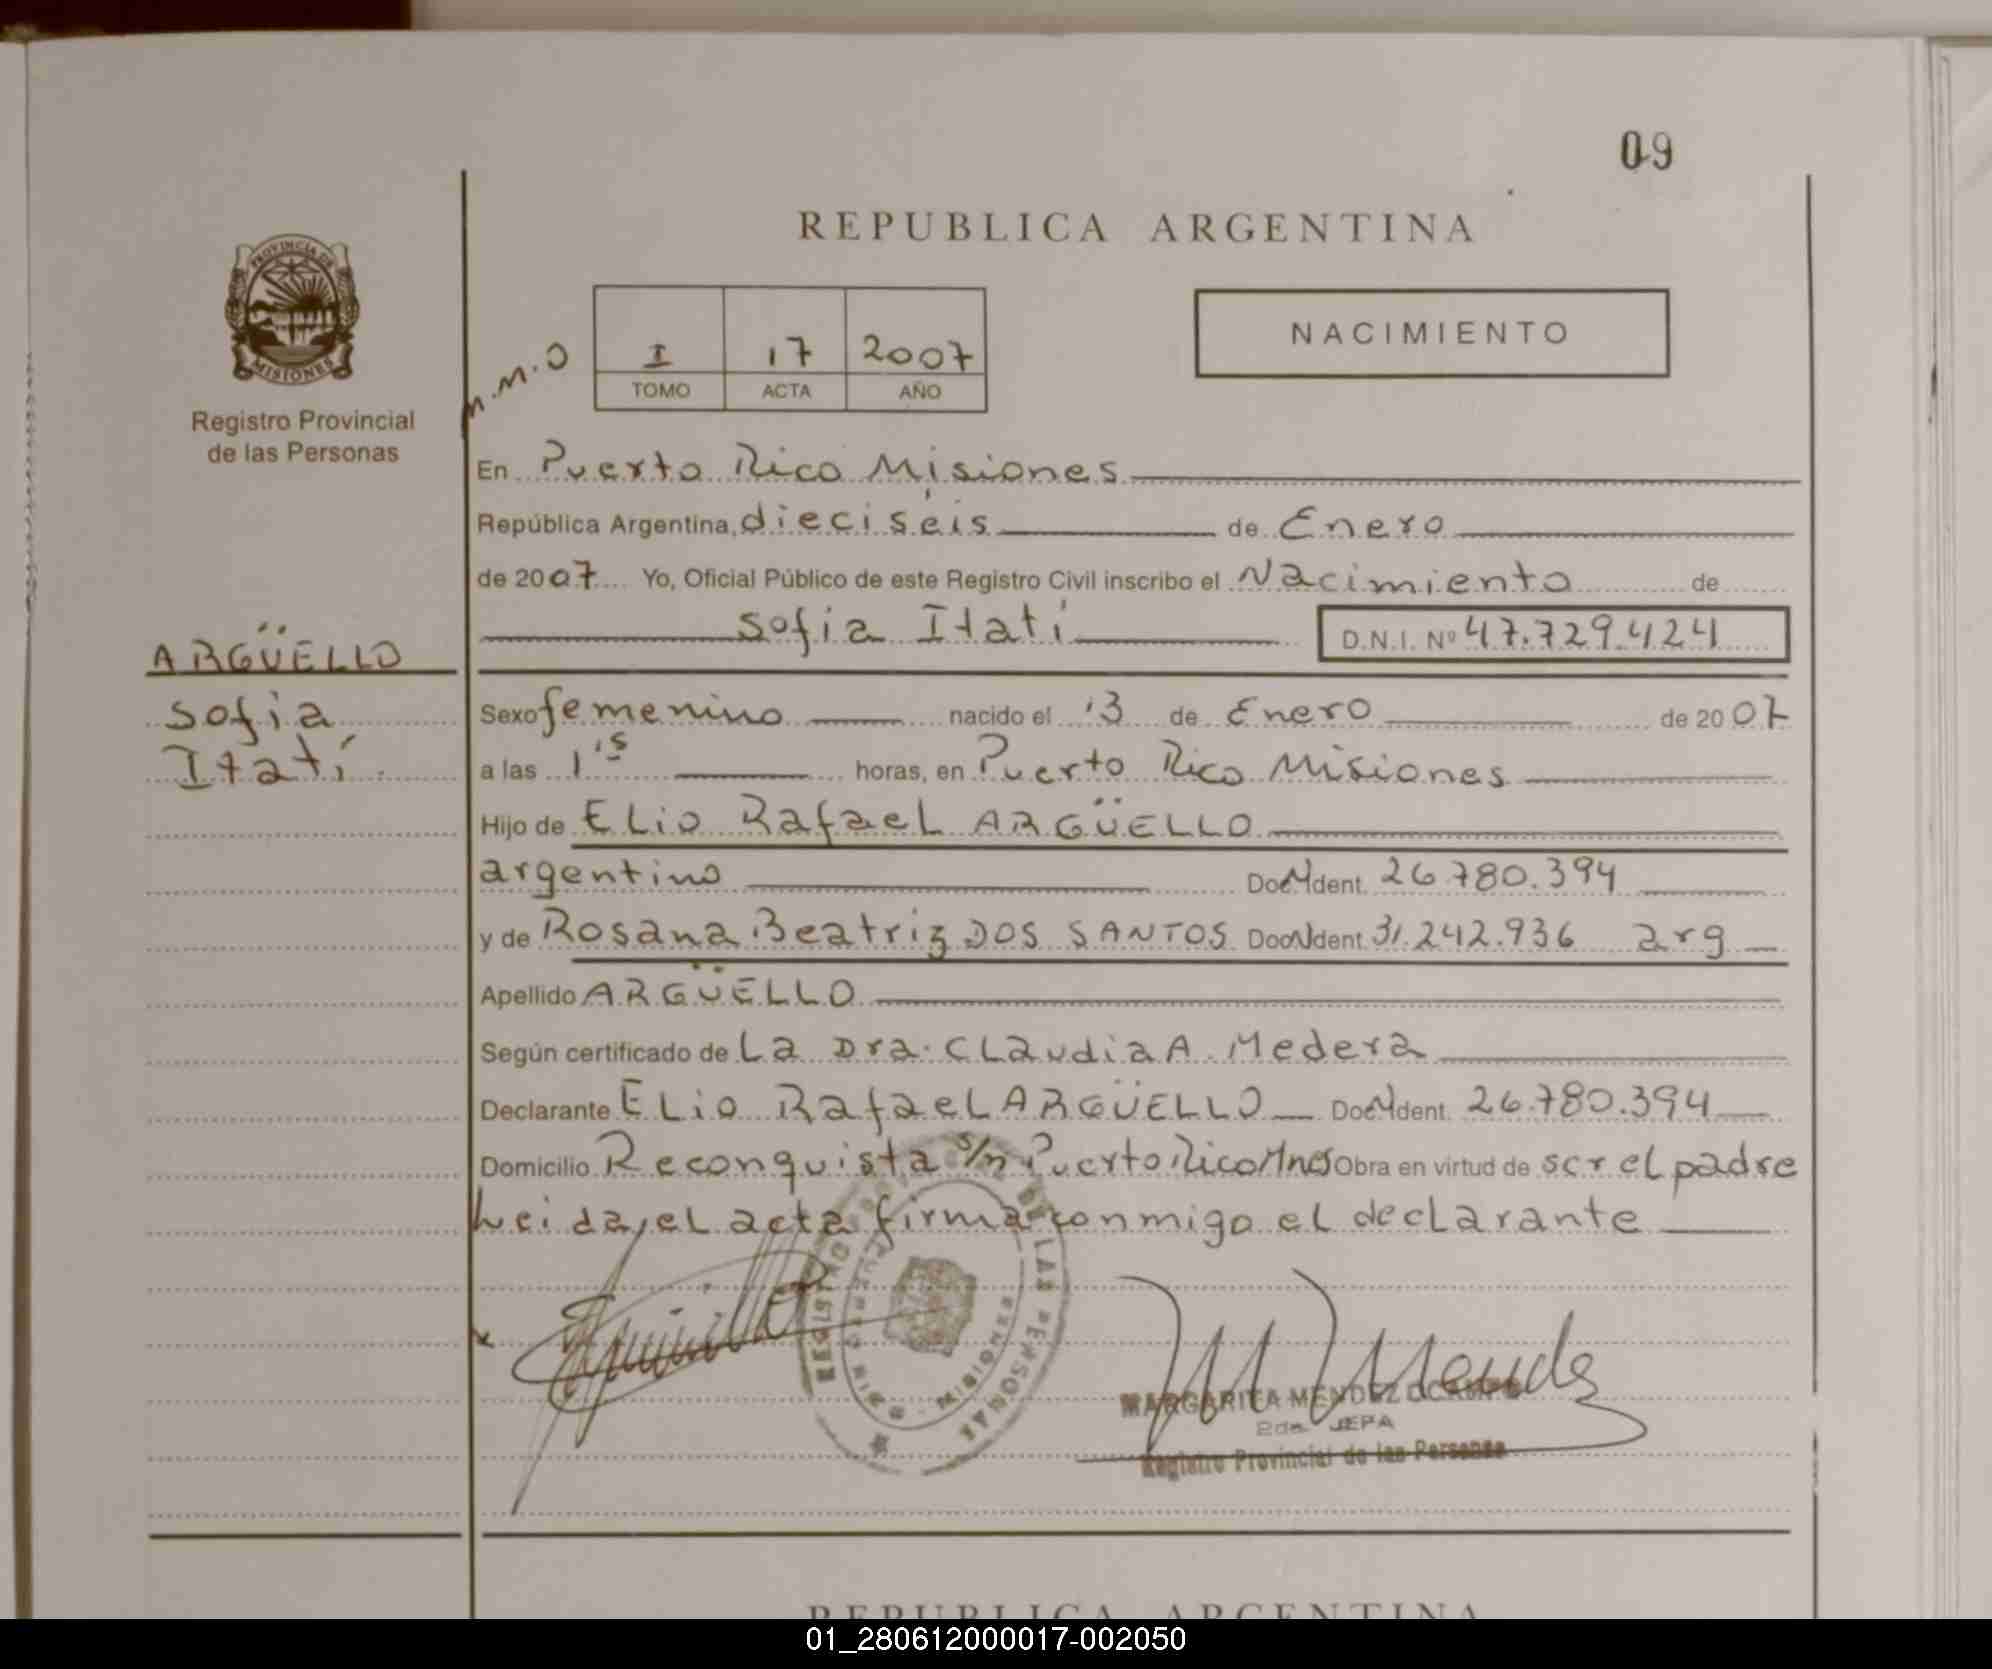 09
REPUBLICA ARGENTINA
PROVINCIA DE
MISIONES
Registro Provincial
de las Personas
M.M.O
I 17 2007
TOMO ACTA AÑO
NACIMIENTO
En Puerto Rico Misiones
República Argentina, dieciséis de Enero
de 2007 Yo, Oficial Público de este Registro Civil inscribo el Nacimiento de
Sofia Itatí
D.N.I. Nº 47.729.424
ARGÜELLO
Sofia
Itatí
Sexo femenino nacido el 13 de Enero de 2007
a las 1 15 horas, en Puerto Rico Misiones
Hijo de Elio Rafael ARGÜELLO
argentino Doc Ident. 26.780.394
y de Rosana Beatriz DOS SANTOS Doc Ident. 31.242.936 arg
Apellido ARGÜELLO
Según certificado de La Dra. Claudia A. Medera
Declarante Elio Rafael ARGÜELLO Doc Ident. 26.780.394
Domicilio Reconquista s/n Puerto Rico Mnes Obra en virtud de ser el padre
Leida, el acta firma conmigo el declarante
REGISTRO DE LAS PERSONAS
PUERTO RICO MISIONES
MARGARITA MENDEZ OCAMPO
2da JEFA
Registro Provincial de las Personas
REPUBLICA ARGENTINA
01_280612000017-002050